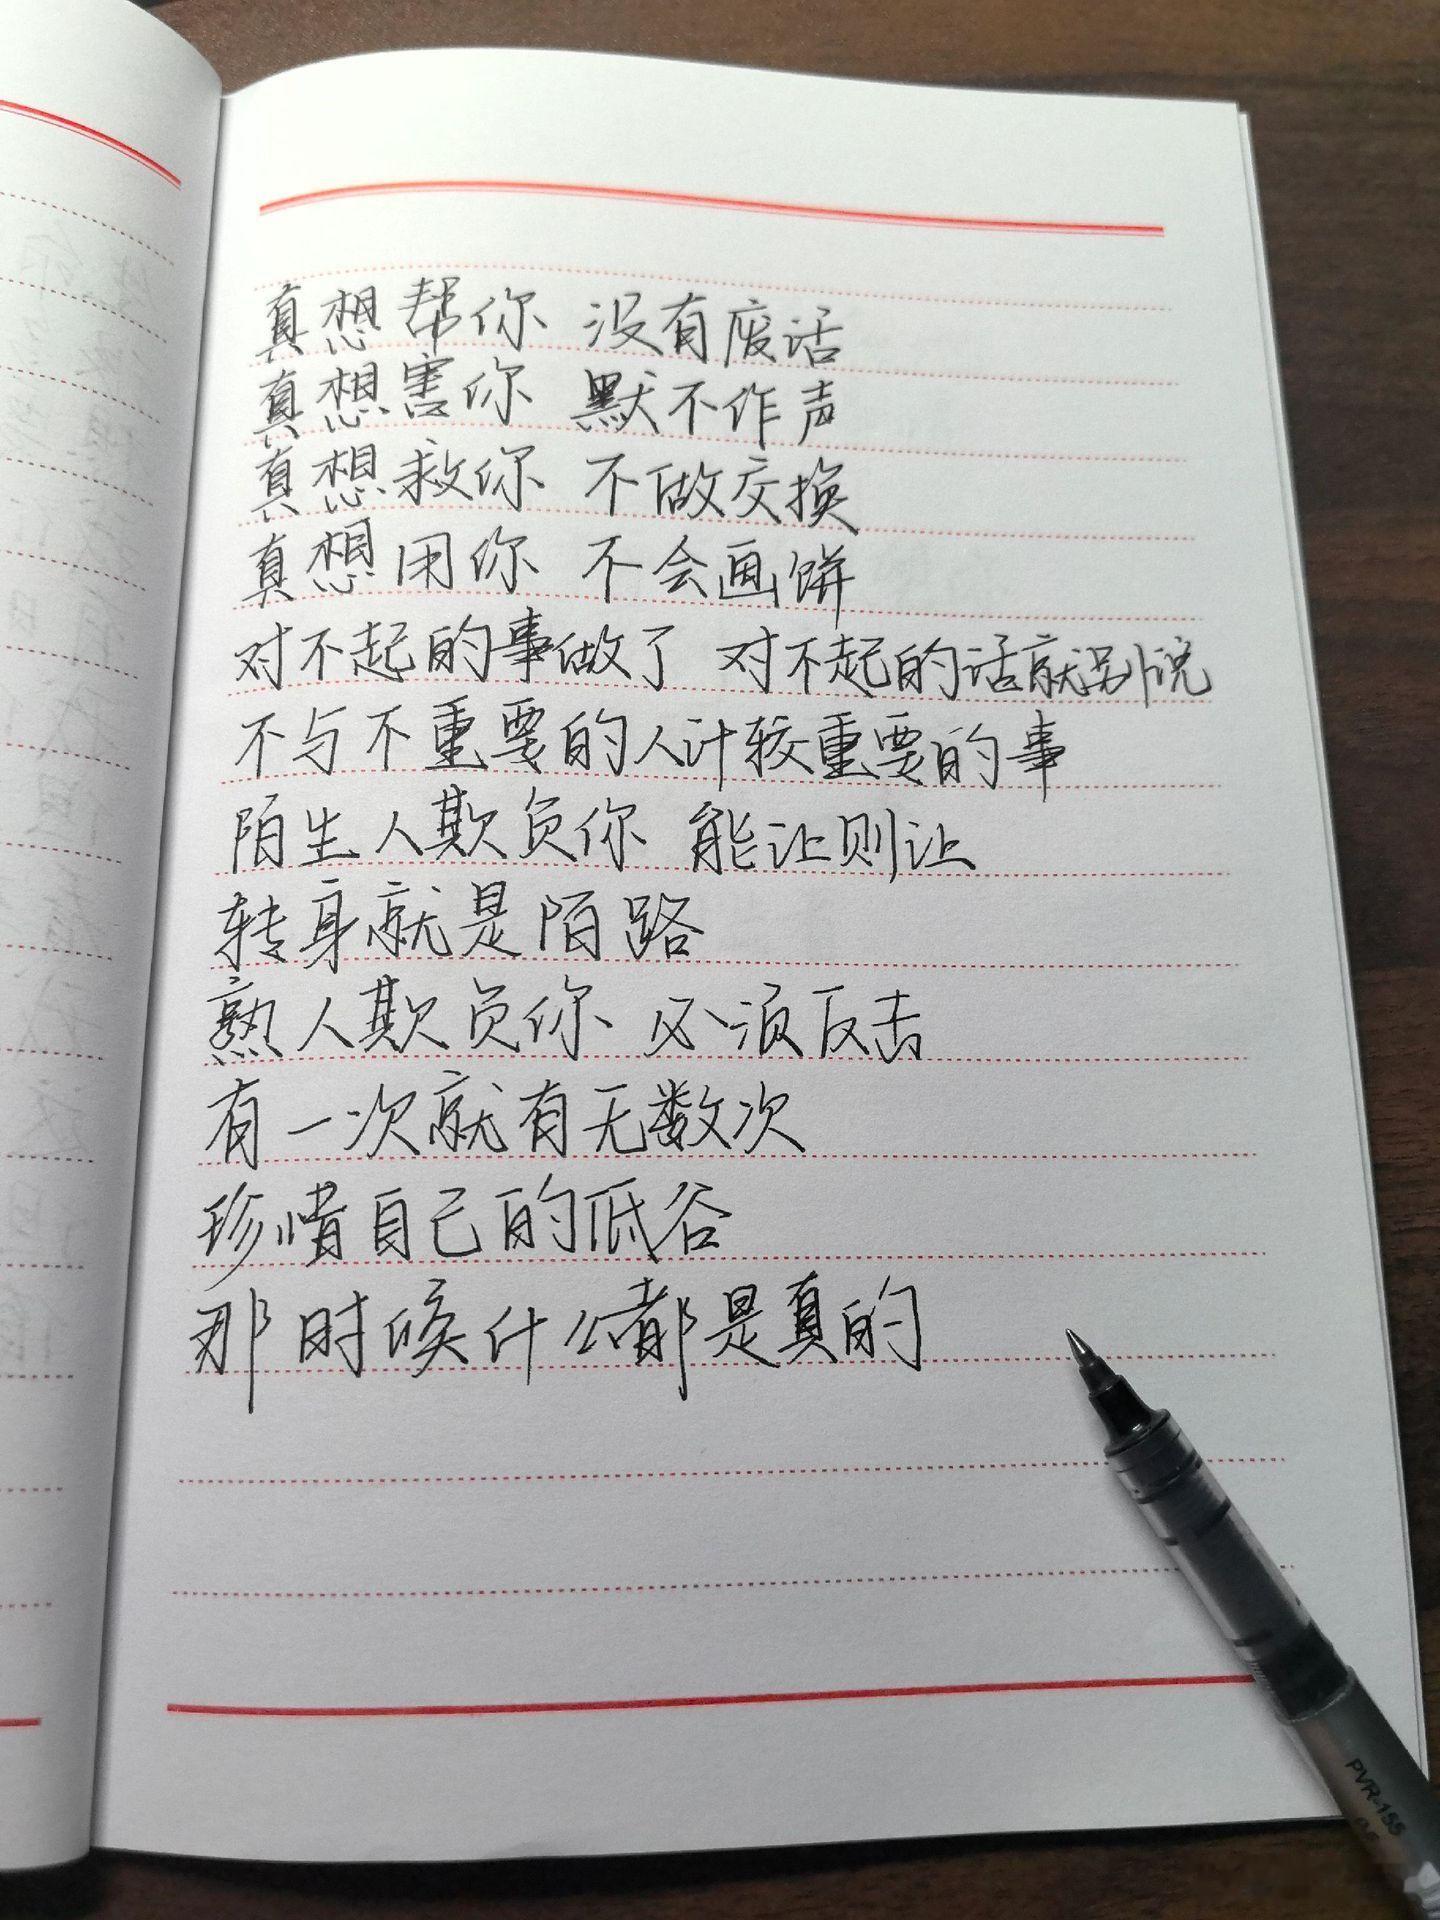 真想帮你 没有废话
真想害你 默不作声
真想救你 不做交换
真想用你 不会画饼
对不起的事做了 对不起的话就别说
不与不重要的人计较重要的事
陌生人欺负你 能让则让
转身就是陌路
熟人欺负你 必须反击
有一次就有无数次
珍惜自己的低谷
那时候什么都是真的
PVR-155